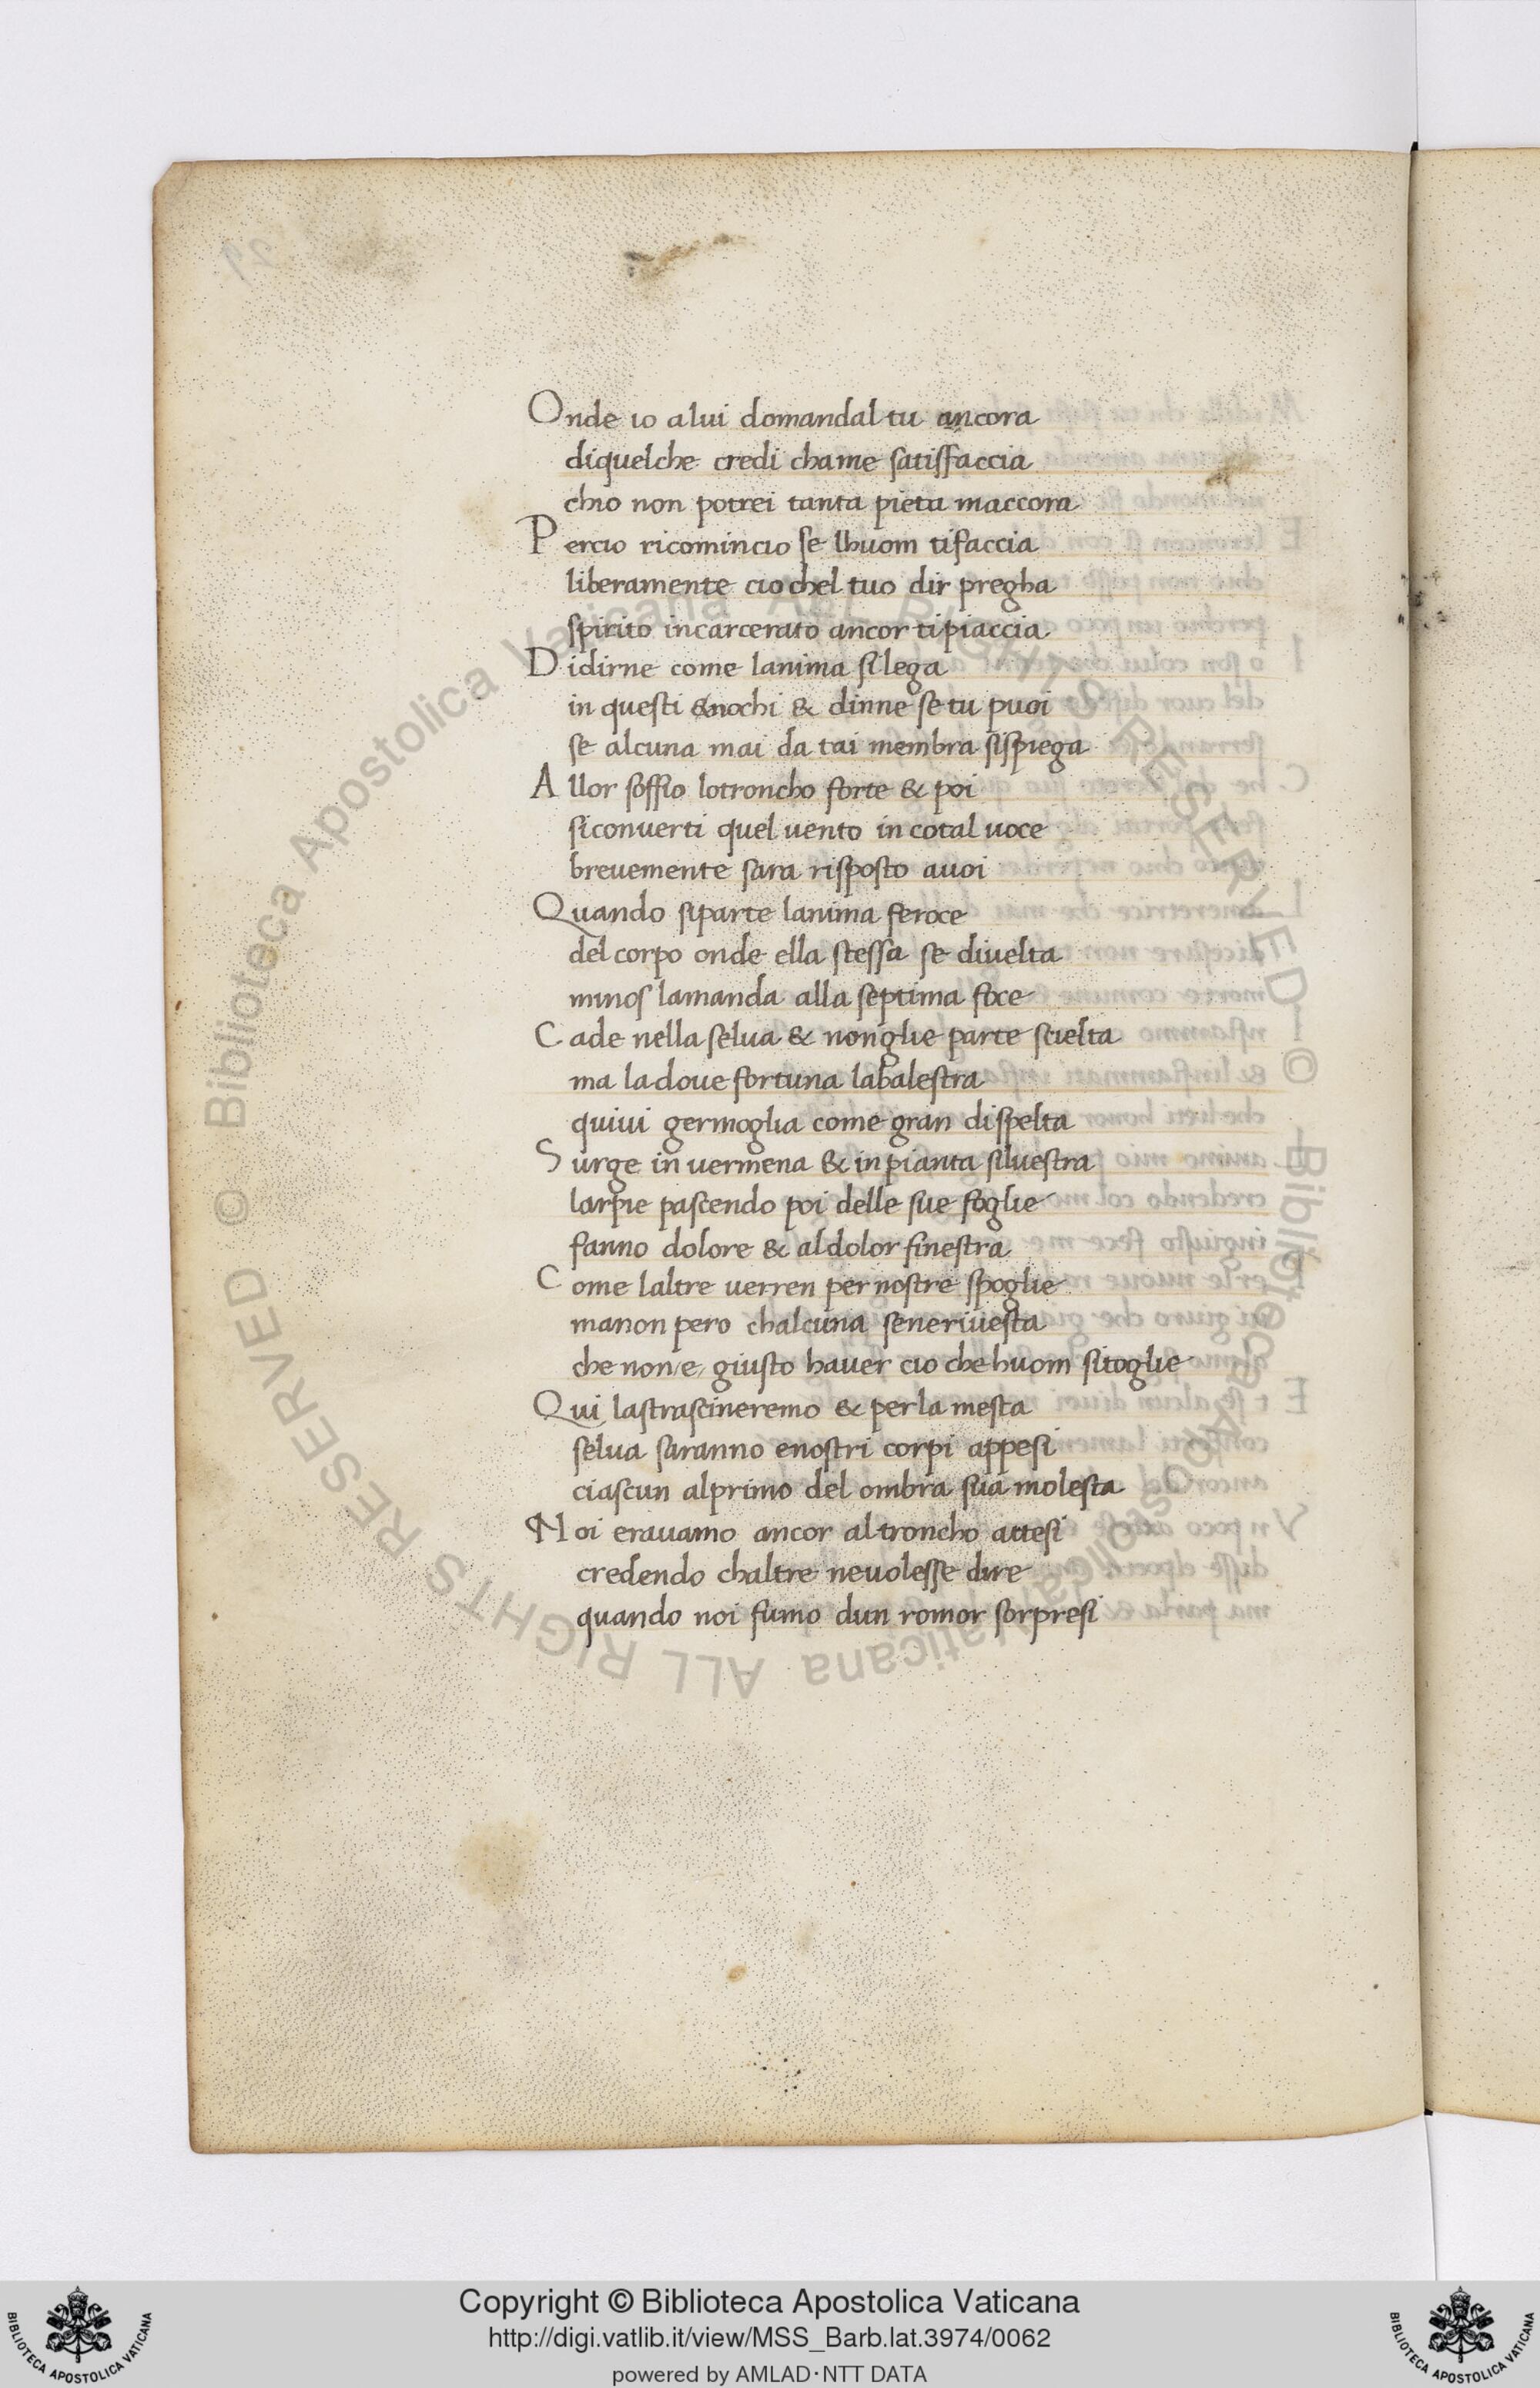 Onde io alui domandal tu ancora
diquelche credi chame satisfaccia
chio non potrei tanta pieta maccora
Percio ricomincio se lhuom tifaccia
liberamente cio chel tuo dir pregha
spirito incarcerato ancor tipiaccia
Didirne come lanima silega
in questi nochi & dinne se tu puoi
se alcuna mai da tai membra sispiega
Allor soffio lotroncho forte & poi
siconverti quel uento in cotal uoce
breuemente sara risposto auoi
Quando siparte lanima feroce
del corpo onde ella stessa se diuelta
minos lamanda alla septima foce
Cade nella selua & nonglie parte scielta
ma ladoue fortuna labalestra
quiui germoglia come gran dispelta
Surge in uermena & in pianta siluestra
larpie pascendo poi delle sue foglie
fanno dolore & aldolor finestra
Come laltre uerren per nostre spoglie
manon pero chalcuna seneriuesta
che non /e/ giusto hauer cio che huom sitoglie
Qui lastrascineremo & perla mesta
selua saranno enostri corpi appesi
ciascun alprimo del ombra sua molesta
Noi erauamo ancor altroncho attesi
credendo chaltre neuolesse dire
quando noi fumo dun romor sorpresi
Biblioteca Apostolica Vaticana ALL RIGHTS RESERVED ©
Biblioteca Apostolica Vaticana ALL RIGHTS RESERVED ©
Copyright © Biblioteca Apostolica Vaticana
http://digi.vatlib.it/view/MSS_Barb.lat.3974/0062
powered by AMLAD·NTT DATA
BIBLIOTECA APOSTOLICA VATICANA
BIBLIOTECA APOSTOLICA VATICANA